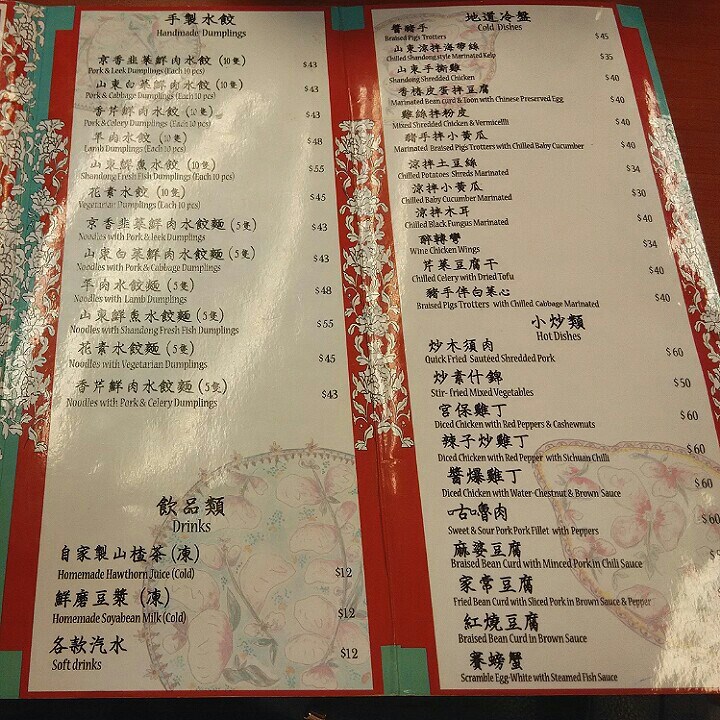 手製水餃
Handmade Dumplings
京香韮菜鮮肉水餃 (10隻)
Pork & Leek Dumplings (Each 10 pcs) $43
山東白菜鮮肉水餃 (10隻)
Pork & Cabbage Dumplings (Each 10 pcs) $43
香芹鮮肉水餃 (10隻)
Pork & Celery Dumplings (Each 10 pcs) $43
羊肉水餃 (10隻)
Lamb Dumplings (Each 10 pcs) $48
山東鮮魚水餃 (10隻)
Shandong Fresh Fish Dumplings (Each 10 pcs) $55
花素水餃 (10隻)
Vegetarian Dumplings (Each 10 pcs) $45
京香韮菜鮮肉水餃麵 (5隻)
Noodles with Pork & Leek Dumplings $43
山東白菜鮮肉水餃麵 (5隻)
Noodles with Pork & Cabbage Dumplings $43
羊肉水餃麵 (5隻)
Noodles with Lamb Dumplings $48
山東鮮魚水餃麵 (5隻)
Noodles with Shandong Fresh Fish Dumplings $55
花素水餃麵 (5隻)
Noodles with Vegetarian Dumplings $45
香芹鮮肉水餃麵 (5隻)
Noodles with Pork & Celery Dumplings $43
飲品類
Drinks
自家製山楂茶 (凍)
Homemade Hawthorn Juice (Cold) $12
鮮磨豆漿 (凍)
Homemade Soyabean Milk (Cold) $12
各款汽水
Soft drinks $12
地道冷盤
Cold Dishes
醬豬手
Braised Pigs Trotters $45
山東涼拌海帶絲
Chilled Shandong style Marinated Kelp $35
山東手撕雞
Shandong Shredded Chicken $40
香椿皮蛋拌豆腐
Marinated Bean curd & Toon with Chinese Preserved Egg $40
雞絲拌粉皮
Mixed Shredded Chicken & Vermicellli $40
豬手拌小黃瓜
Marinated Braised Pigs Trotters with Chilled Baby Cucumber $40
涼拌土豆絲
Chilled Potatoes Shreds Marinated $34
涼拌小黃瓜
Chilled Baby Cucumber Marinated $30
涼拌木耳
Chilled Black Fungus Marinated $40
醉轉彎
Wine Chicken Wings $34
芹菜豆腐干
Chilled Celery with Dried Tofu $40
豬手伴白菜心
Braised Pigs Trotters with Chilled Cabbage Marinated $40
小炒類
Hot Dishes
炒木須肉
Quick Fried Sautéed Shredded Pork $60
炒素什錦
Stir-fried Mixed Vegetables $50
宮保雞丁
Diced Chicken with Red Peppers & Cashewnuts $60
辣子炒雞丁
Diced Chicken with Red Pepper with Sichuan Chilli $60
醬爆雞丁
Diced Chicken with Water-Chestnut & Brown Sauce $60
咕嚕肉
Sweet & Sour Pork Pork Fillet with Peppers $60
麻婆豆腐
Braised Bean Curd with Minced Pork in Chili Sauce
家常豆腐
Fried Bean Curd with Sliced Pork in Brown Sauce & Pepper
紅燒豆腐
Braised Bean Curd in Brown Sauce
賽螃蟹
Scramble Egg-White with Steamed Fish Sauce